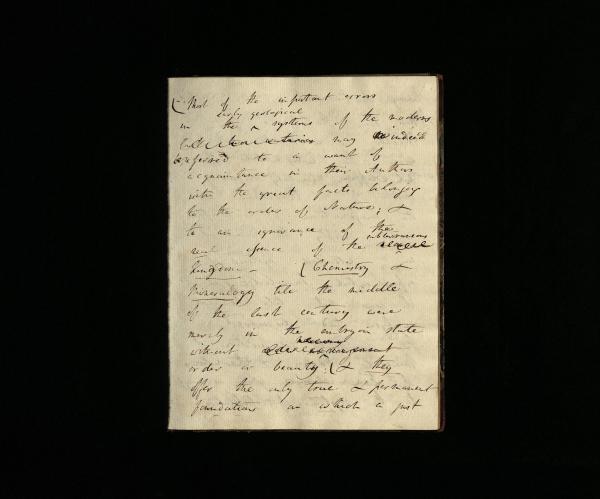 ( Most of the important errors
early geological
in the ^ systems of the moderns
may indeed
be referred to a want of
acquaintance in their Authors
with the great facts belonging
to the order of Nature; &
to an ignorance of the
subterraneous
real essence of the
kingdom. — ( Chemistry &
Mineralogy till the middle
of the last century were
merely in the embryon state
without
order or beauty; ( & they
offer the only true & permanent
foundations on which a just